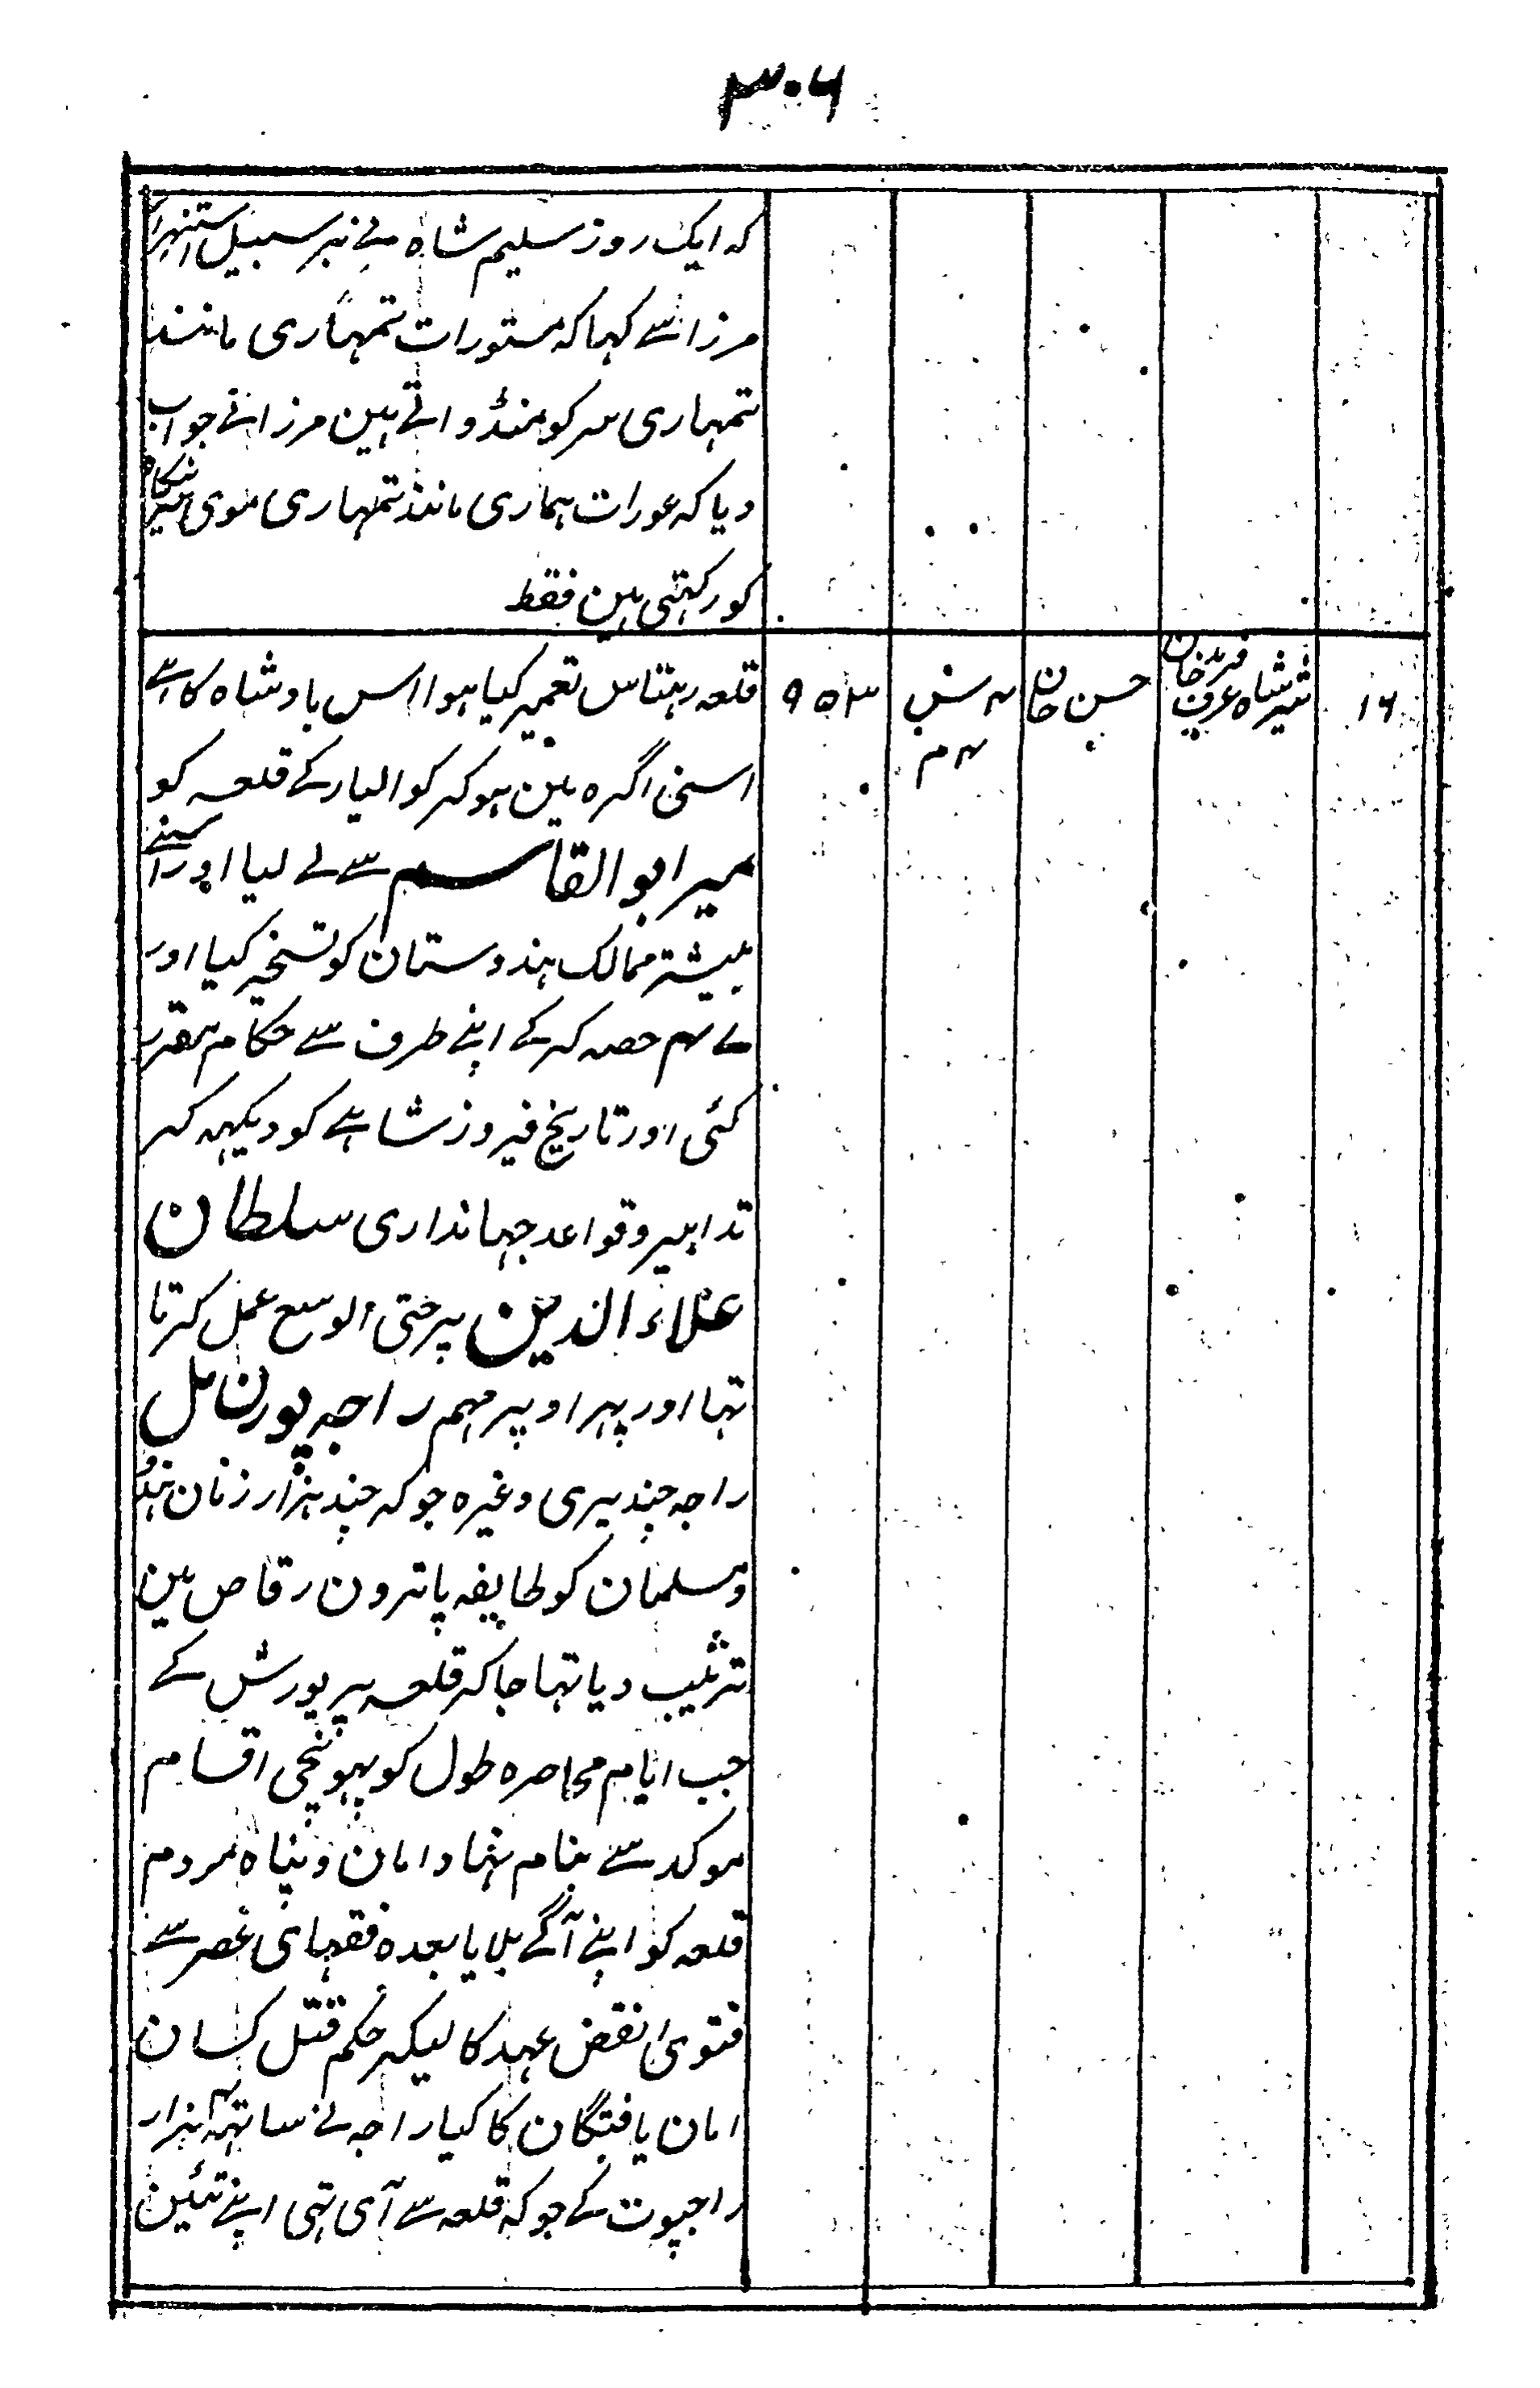 ۳۰۶
کہ ایک روز سلیم شاہ نے بر سبیل استہزا
مرزا سے کہا کہ مستورات تمہاری مانند
تمہاری سر کو منڈواتے ہین مرزا نے جواب
دیا کہ عورات ہماری مانند تمہاری موی
کو رکہتی ہین فقط
۱۶
شیر شاہ عرف فرید خان
حسن خان
۴ س ۴ م
۹۵۲
قلعہ رہتاس تعمیر کیا ہوا اس بادشاہ کا ہے
اسنی اگرہ مین ہو کر کوالیار کے قلعہ کو
میر ابو القاسم سے لے لیا اور اسنے
بیشتر ممالک ہندوستان کو تسخیر کیا اور
۴۷ حصہ کر کے اپنے طرف سے حکام مقرر
کئی اور تاریخ فیروز شاہے کو دیکہہ کر
تدابیر و قواعد جہانداری سلطان
علاء الدین پر حتی الوسع عمل کرتا
تہا اور پہر اوپر مہم راجہ پورن مل
راجہ چندیری وغیرہ جو کہ چند ہزار زنان ہندو
و مسلمان کو طایفہ پاترون رقاص مین
ترتیب دیا تہا جا کر قلعہ پر یورش کے
جب ایام محاصرہ طول کو پہونچی اقسام
موکد سے بنام نہاد امان و پناہ مردم
قلعہ کو اپنے آگے بلایا بعدہ فقہای عصر سے
فتوی نقض عہد کا لیکر حکم قتل کسان
امان یافتگان کا کیا راجہ نے ساتہہ ۴ ہزار
راجپوت کے جو کہ قلعہ سے آی تہی اپنے تئین